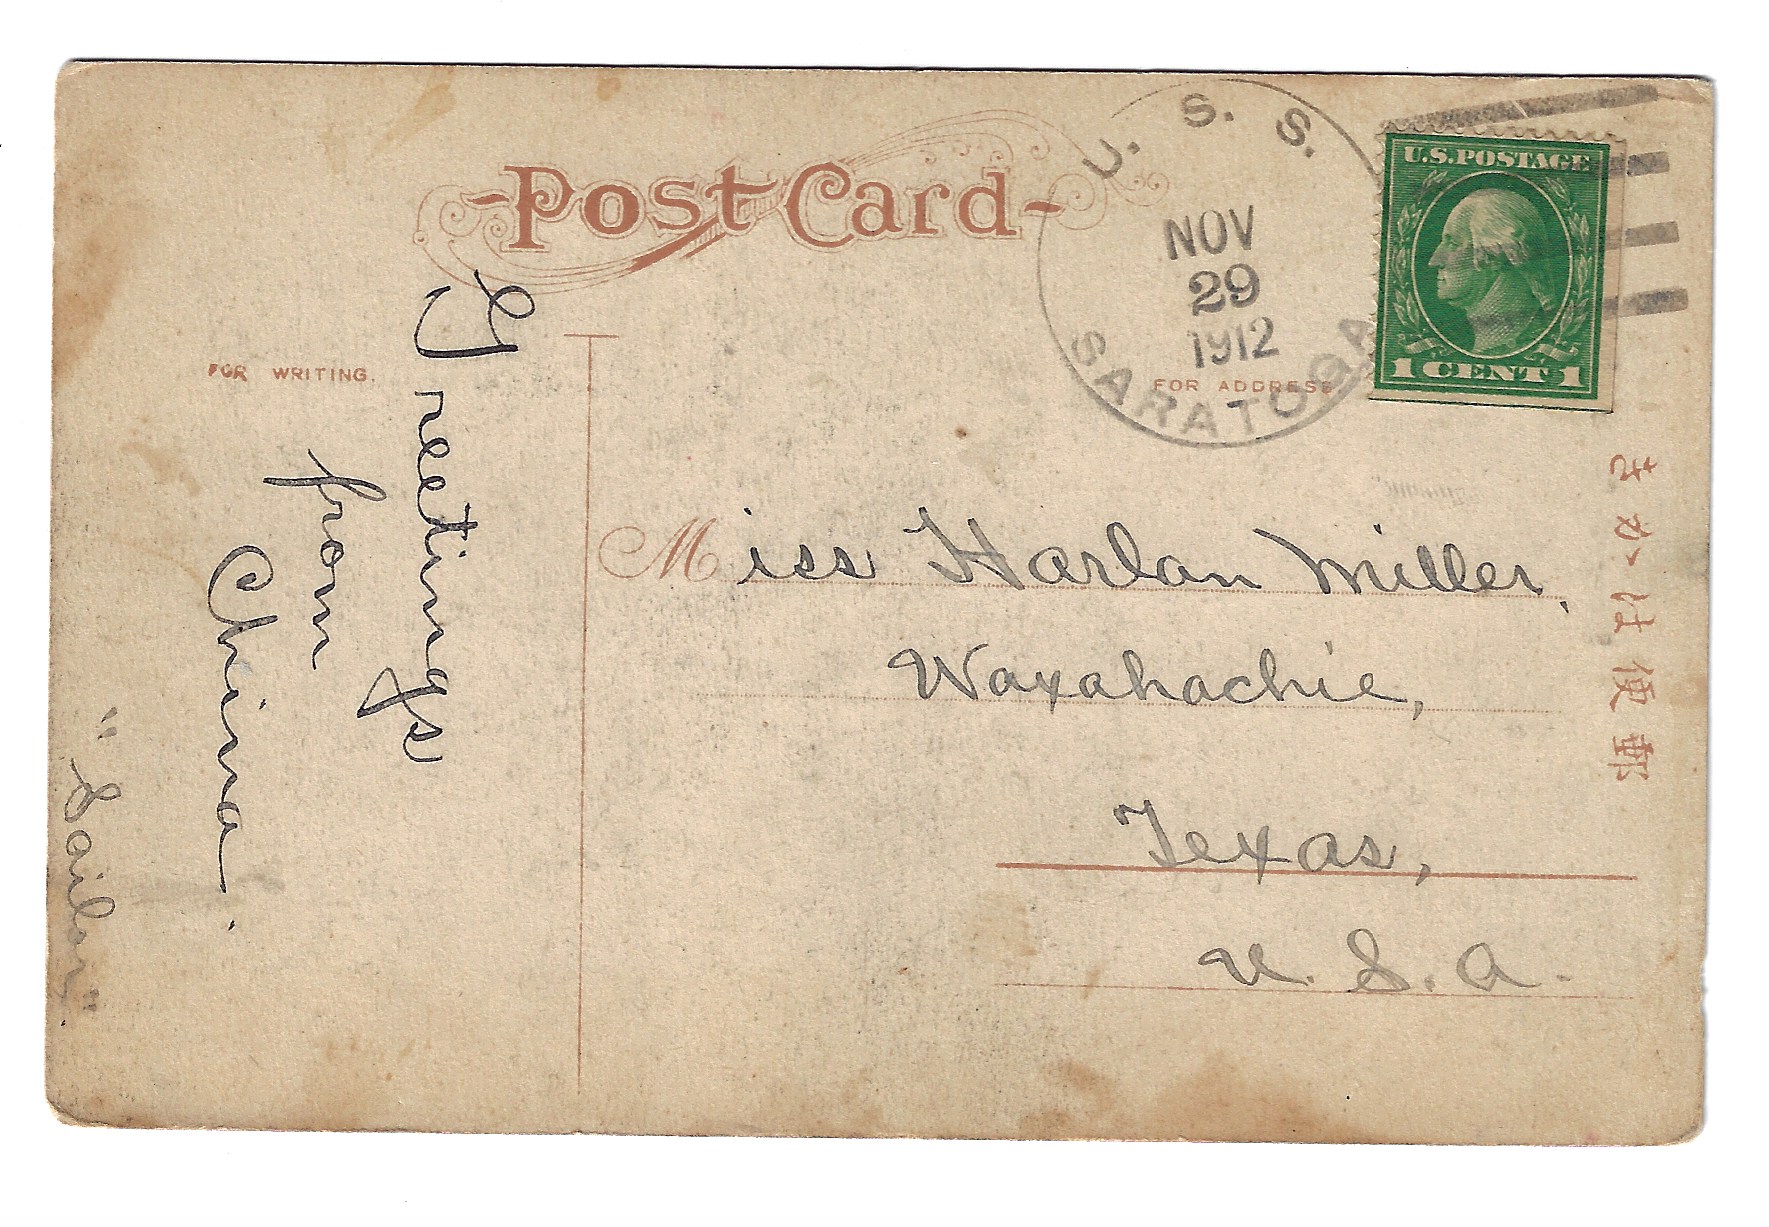 Post Card
U. S. S.
NOV
29
1912
SARATOGA
U.S.POSTAGE
1 CENT 1
FOR WRITING.
FOR ADDRESS
Greetings
from
China.
"Sailor"
Miss Harlan Miller,
Waxahachie,
Texas,
U. S. A.
郵便はかき